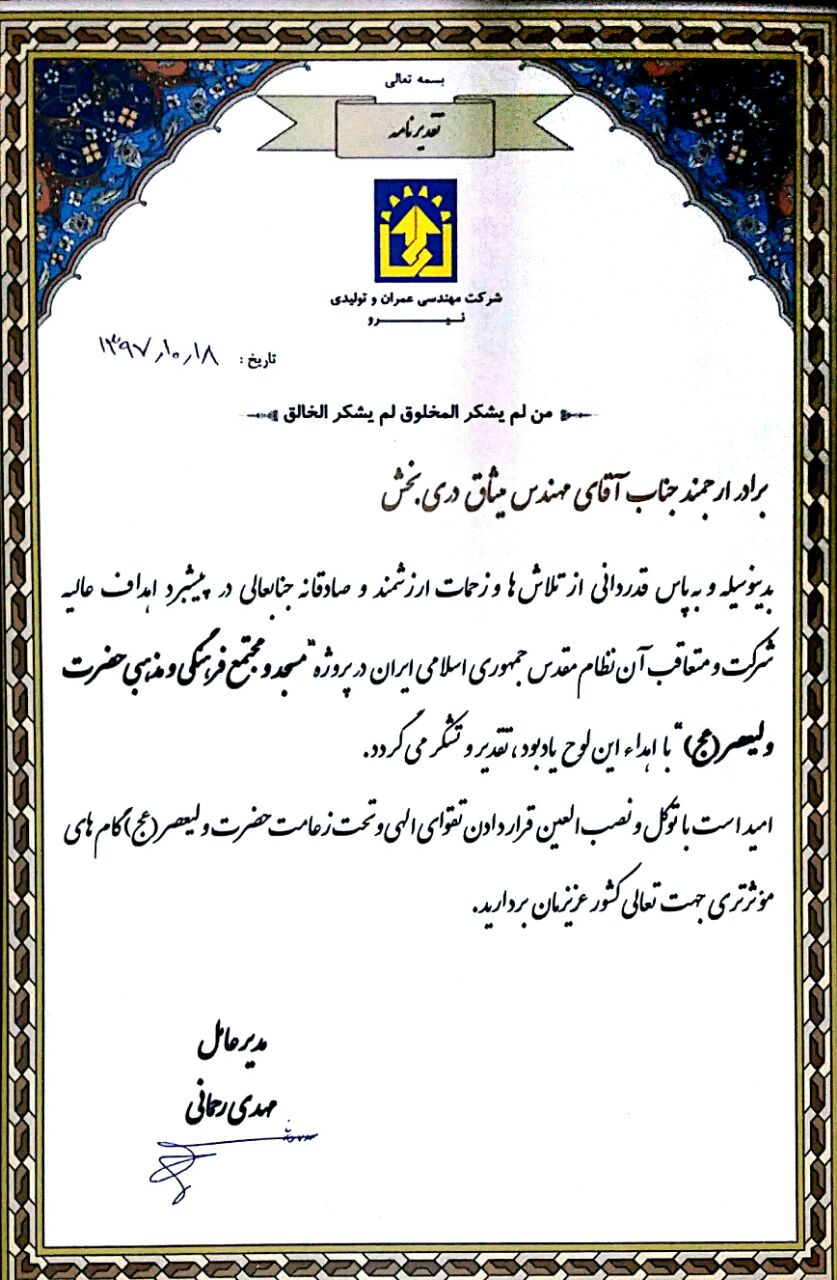 بسمه تعالی
تقدیرنامه
شرکت مهندسی عمران و تولیدی
نیرو
تاریخ : ۱۳۹۷٫۱۰٫۱۸
من لم یشکر المخلوق لم یشکر الخالق
برادر ارجمند جناب آقای مهندس میثاق دری بخش
بدینوسیله و به پاس قدردانی از تلاش ها و زحمات ارزشمند و صادقانه جنابعالی در پیشبرد اهداف عالیه
شرکت و متعاقب آن نظام مقدس جمهوری اسلامی ایران در پروژه "مسجد و مجتمع فرهنگی و مذهبی حضرت
ولیعصر(عج)" با اهداء این لوح یادبود، تقدیر و تشکر می گردد.
امید است با توکل و نصب العین قرار دادن تقوای الهی و تحت زعامت حضرت ولیعصر(عج) گام های
مؤثرتری جهت تعالی کشور عزیزمان بردارید.
مدیر عامل
مهدی رحمانی